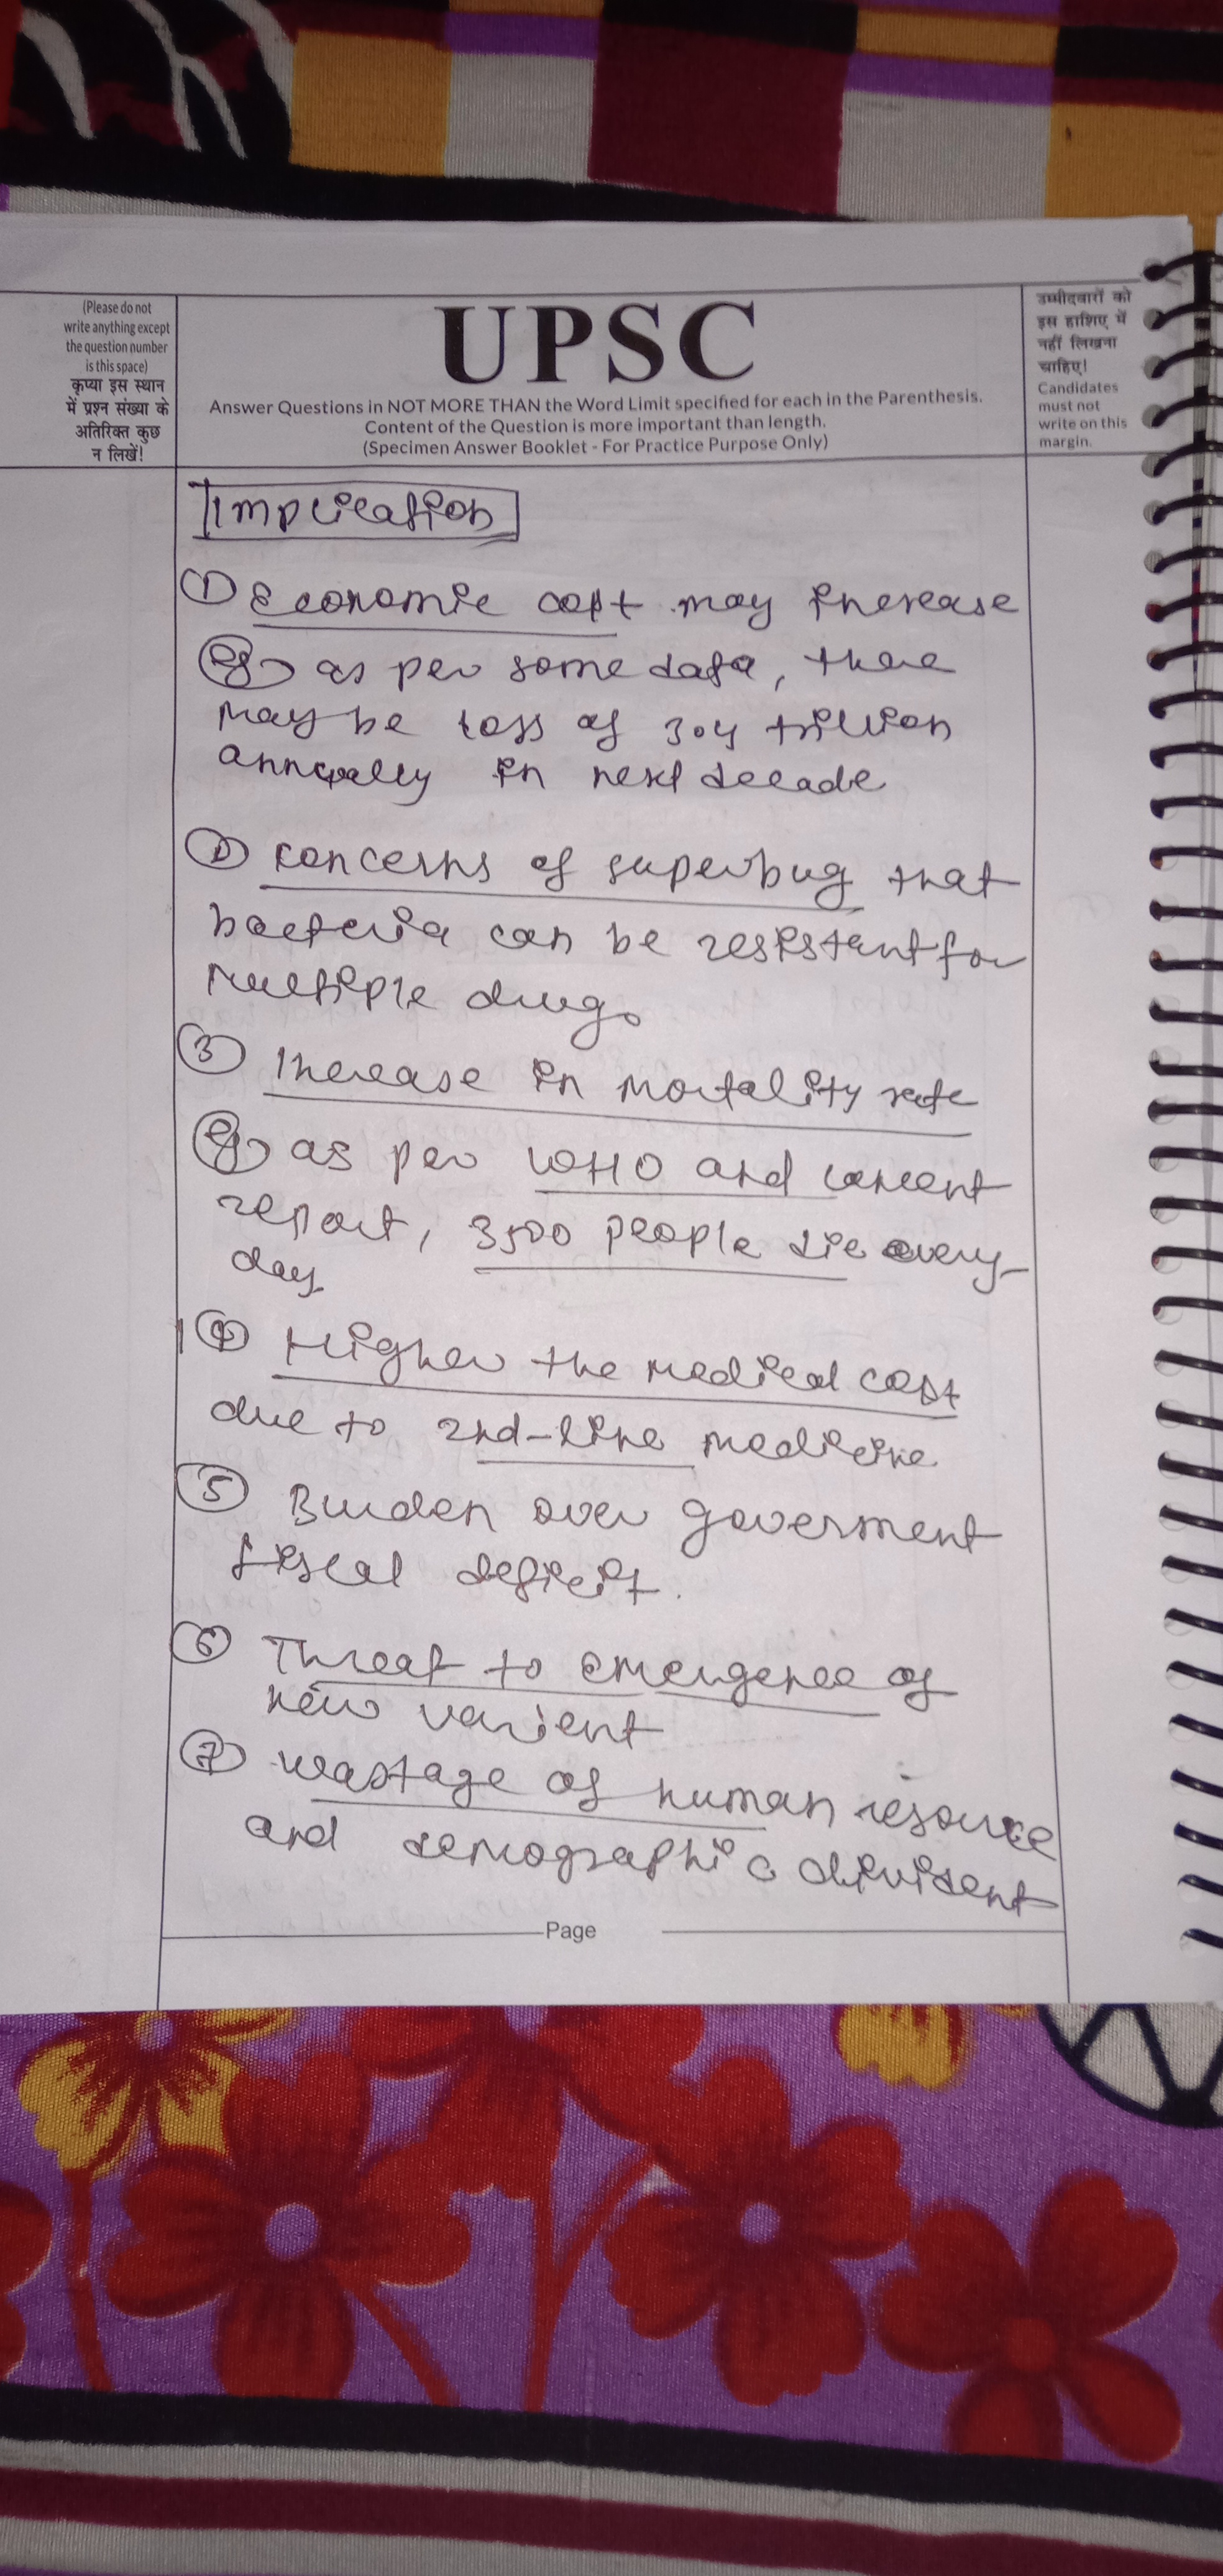 (Please do not
write anything except
the question number
is this space)
कृप्या इस स्थान
में प्रश्न संख्या के
अतिरिक्त कुछ
न लिखें!
UPSC
Answer Questions in NOT MORE THAN the Word Limit specified for each in the Parenthesis.
Content of the Question is more important than length.
(Specimen Answer Booklet - For Practice Purpose Only)
उम्मीदवारों को
इस हाशिए में
नहीं लिखना
चाहिए!
Candidates
must not
write on this
margin.
Implication
① Economic cost may increase
eg as per some data, there
may be loss of 3.4 trillion
annually in next decade
② concerns of superbug that
bacteria can be resistant for
multiple drug.
③ Increase in mortality rate
eg as per WHO and Lancent
report, 3500 people die every
day
④ Higher the medical cost
due to 2nd-line medicine
⑤ Burden over goverment
fiscal deficit.
⑥ Threat to emergence of
new varient
⑦ wastage of human resource
and demographic divident
Page